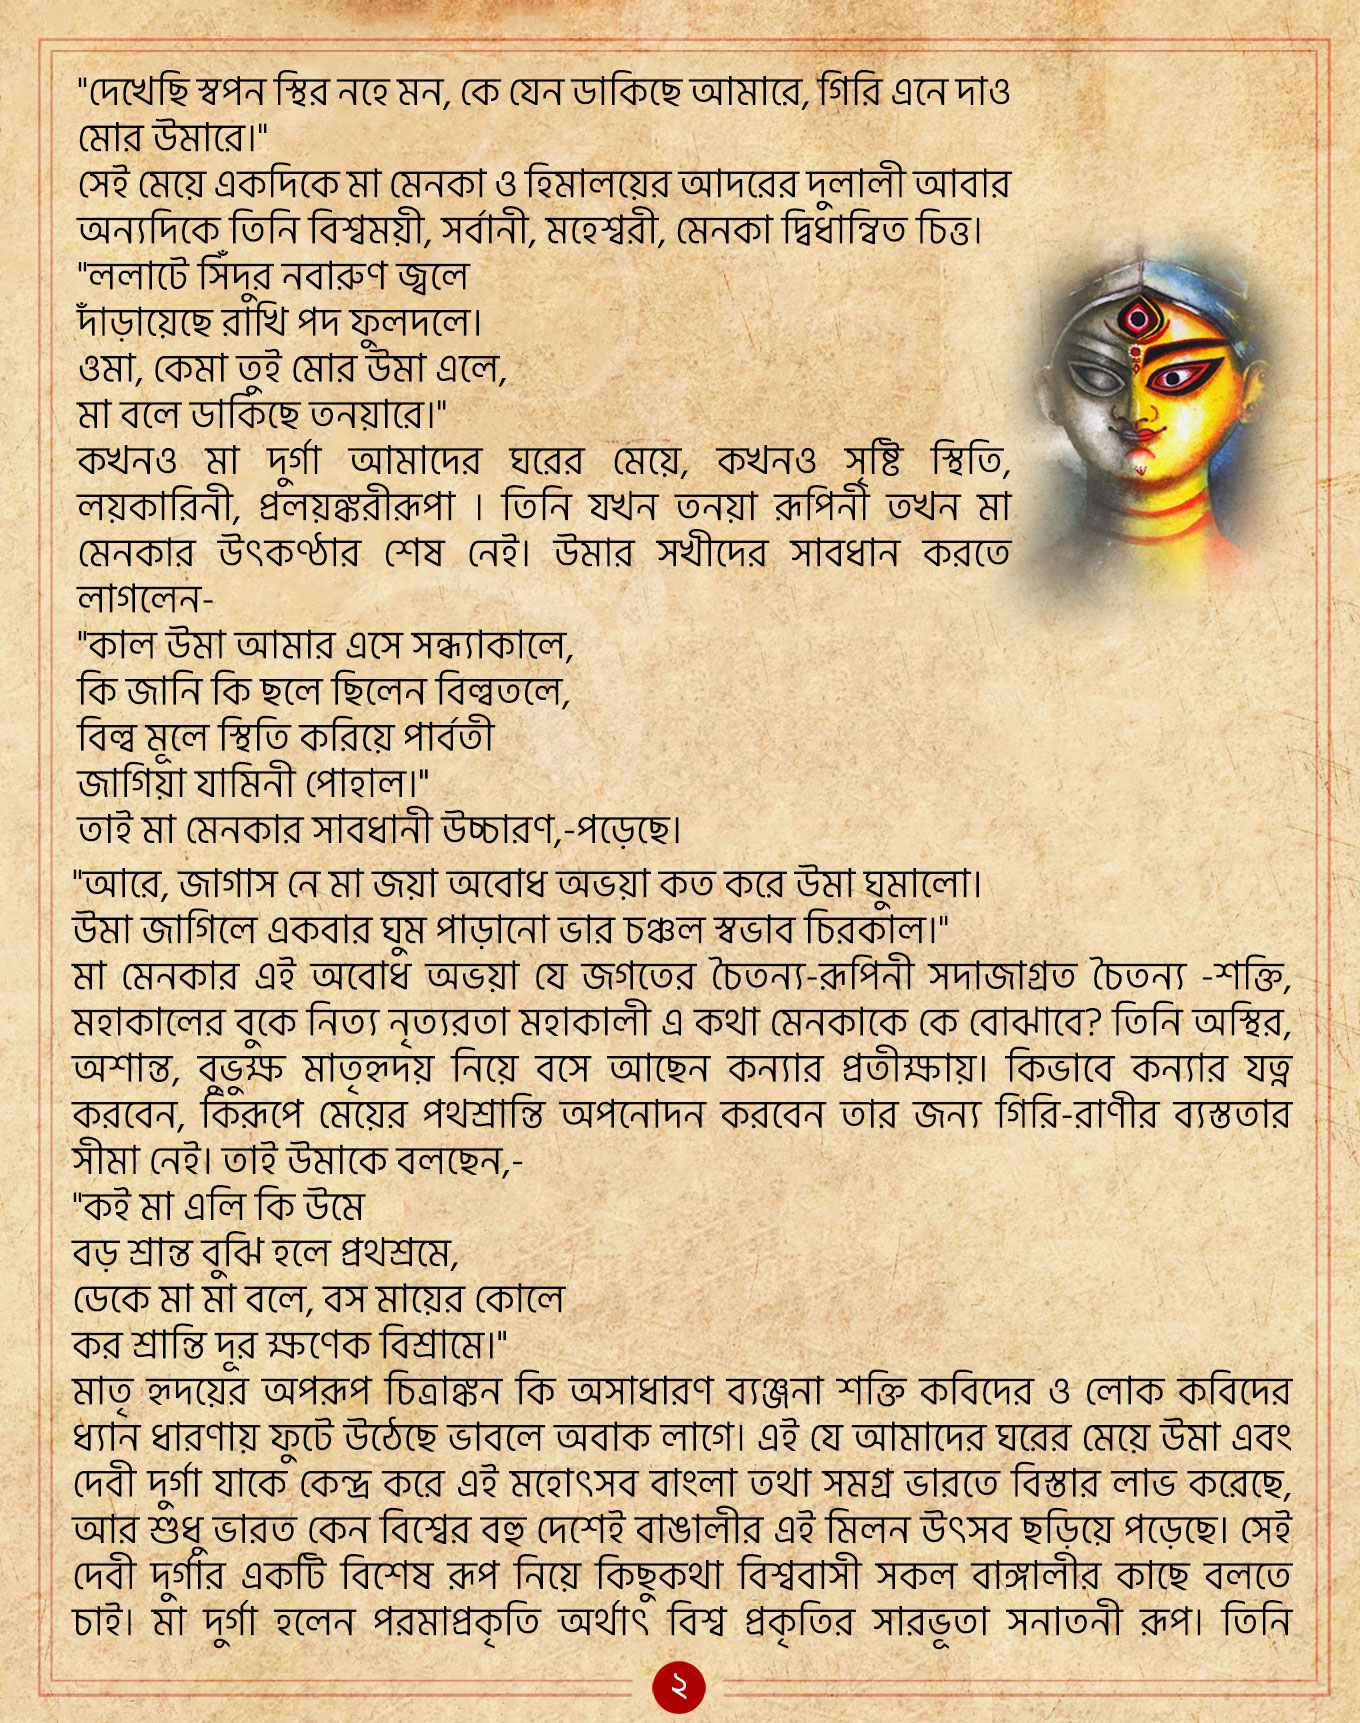 "দেখেছি স্বপন স্থির নহে মন, কে যেন ডাকিছে আমারে, গিরি এনে দাও
মোর উমারে।"
সেই মেয়ে একদিকে মা মেনকা ও হিমালয়ের আদরের দুলালী আবার
অন্যদিকে তিনি বিশ্বময়ী, সর্বানী, মহেশ্বরী, মেনকা দ্বিধান্বিত চিত্ত।
"ললাটে সিঁদুর নবারুণ জ্বলে
দাঁড়ায়েছে রাখি পদ ফুলদলে।
ওমা, কেমা তুই মোর উমা এলে,
মা বলে ডাকিছে তনয়ারে।"
কখনও মা দুর্গা আমাদের ঘরের মেয়ে, কখনও সৃষ্টি স্থিতি,
লয়কারিনী, প্রলয়ঙ্করীরূপা । তিনি যখন তনয়া রূপিনী তখন মা
মেনকার উৎকণ্ঠার শেষ নেই। উমার সখীদের সাবধান করতে
লাগলেন-
"কাল উমা আমার এসে সন্ধ্যাকালে,
কি জানি কি ছলে ছিলেন বিল্বতলে,
বিল্ব মূলে স্থিতি করিয়ে পার্বতী
জাগিয়া যামিনী পোহাল।"
তাই মা মেনকার সাবধানী উচ্চারণ,-পড়েছে।
"আরে, জাগাস নে মা জয়া অবোধ অভয়া কত করে উমা ঘুমালো।
উমা জাগিলে একবার ঘুম পাড়ানো ভার চঞ্চল স্বভাব চিরকাল।"
মা মেনকার এই অবোধ অভয়া যে জগতের চৈতন্য-রূপিনী সদাজাগ্রত চৈতন্য -শক্তি,
মহাকালের বুকে নিত্য নৃত্যরতা মহাকালী এ কথা মেনকাকে কে বোঝাবে? তিনি অস্থির,
অশান্ত, বুভুক্ষ মাতৃহৃদয় নিয়ে বসে আছেন কন্যার প্রতীক্ষায়। কিভাবে কন্যার যত্ন
করবেন, কিরূপে মেয়ের পথশ্রান্তি অপনোদন করবেন তার জন্য গিরি-রাণীর ব্যস্ততার
সীমা নেই। তাই উমাকে বলছেন,-
"কই মা এলি কি উমে
বড় শ্রান্ত বুঝি হলে প্রথশ্রমে,
ডেকে মা মা বলে, বস মায়ের কোলে
কর শ্রান্তি দূর ক্ষণেক বিশ্রামে।"
মাতৃ হৃদয়ের অপরূপ চিত্রাঙ্কন কি অসাধারণ ব্যঞ্জনা শক্তি কবিদের ও লোক কবিদের
ধ্যান ধারণায় ফুটে উঠেছে ভাবলে অবাক লাগে। এই যে আমাদের ঘরের মেয়ে উমা এবং
দেবী দুর্গা যাকে কেন্দ্র করে এই মহোৎসব বাংলা তথা সমগ্র ভারতে বিস্তার লাভ করেছে,
আর শুধু ভারত কেন বিশ্বের বহু দেশেই বাঙালীর এই মিলন উৎসব ছড়িয়ে পড়েছে। সেই
দেবী দুর্গার একটি বিশেষ রূপ নিয়ে কিছুকথা বিশ্ববাসী সকল বাঙ্গালীর কাছে বলতে
চাই। মা দুর্গা হলেন পরমাপ্রকৃতি অর্থাৎ বিশ্ব প্রকৃতির সারভূতা সনাতনী রূপ। তিনি
২